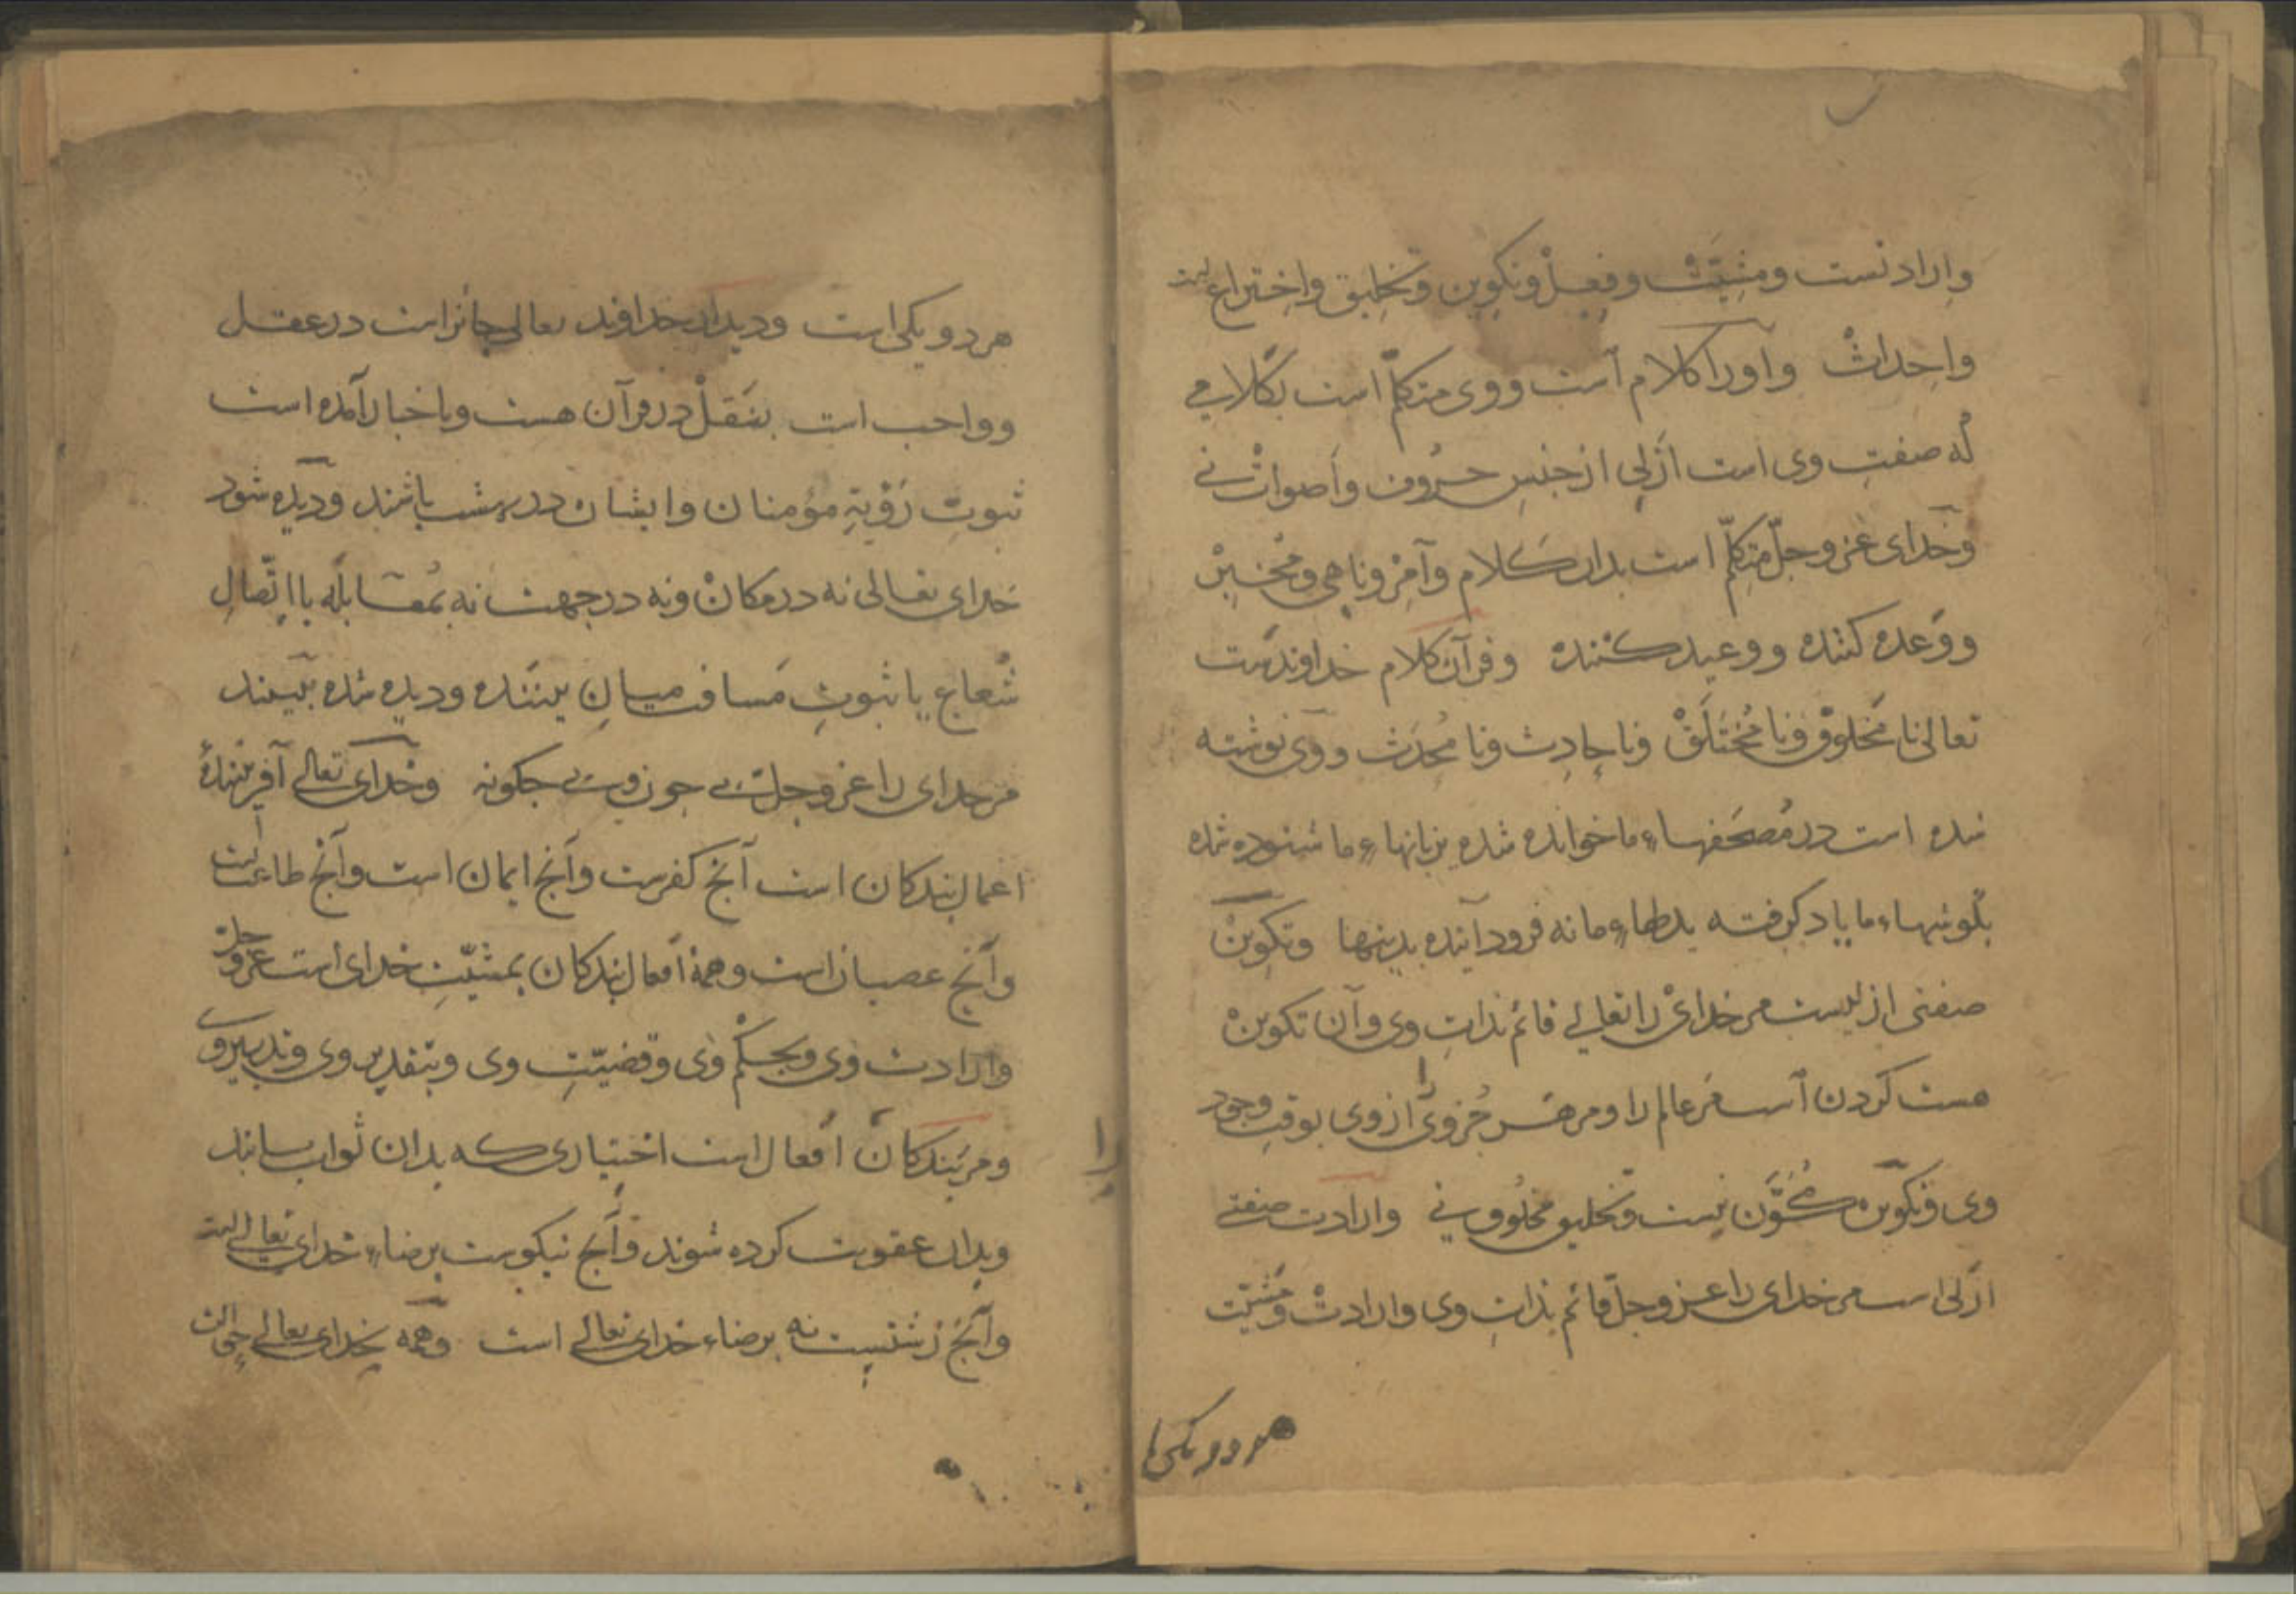 وارادتست ومشیّت وفعل وتکوین وتخلیق واختراع است
واحداث واورا کلام است ووی متکلّم است بکلامی
که صفت وی است ازلی از جنس حروف واصوات نی
وخدای عزوجلّ متکلّم است بدان کلام وآمر وناهی ومخبر
ووعده کننده ووعید کننده وقرآن کلام خداوندست
تعالی نا مخلوق ونا مختلق ونا حادث ونا محدث ووی نوشته
شده است در مصحفهاء ما خوانده شده بزبانهاء ما شنوده شده
بگوشهاء ما یاد گرفته بدلهاء ما نه فرود آینده بدینها وتکوین
صفتی ازلیست مر خدای را تعالی قائم بذات وی وآن تکوین
هست کردن است مر عالم را ومر هر جزوی را از وی بوقت وجود
وی وتکوین مکوّن نیست وتخلیق مخلوق نی وارادت صفتی
ازلی است مر خدای را عزوجلّ قائم بذات وی وارادت ومشیّت
هر دو یکی ا
هر دو یکی است ودیدار خداوند تعالی جائز است در عقل
وواجب است بنقل در قرآن هست وباخبار آمده است
ثبوت رؤیة مؤمنان وایشان در بهشت باشند ودیده شود
خدای تعالی نه در مکان ونه در جهت نه بمقابله یا اتّصال
شعاع یا ثبوت مسافت میان بیننده ودیده شده ببینند
مر خدای را عزوجل بی چون وبی چکونه وخدای تعالی آفرینندۀ
اعمال بندکان است آنچ کفرست وآنچ ایمان است وآنچ طاعت است
وآنچ عصیان است وهمۀ افعال بندکان بمشیّت خدای است عزوجلّ
وارادت وی وبحکم وی وقضیّت وی وبتقدیر وی وتدبیر وی
ومر بندکان را افعال است اختیاری که بدان ثواب یابند
وبدان عقوبت کرده شوند وآنچ نیکوست برضاء خدای تعالی است
وآنچ زشتیست نه برضاء خدای تعالی است وهمه بخدای تعالی